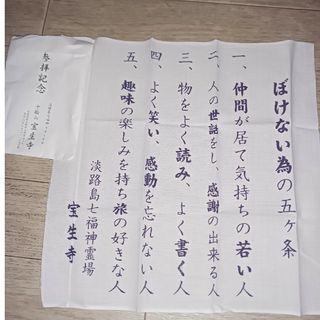 ぼけない為の五ヶ条
一、仲間が居て気持ちの若い人
二、人の世話をし、感謝の出来る人
三、物をよく読み、よく書く人
四、よく笑い、感動を忘れない人
五、趣味の楽しみを持ち旅の好きな人
淡路島七福神霊場
宝生寺
参拝記念
宝生寺